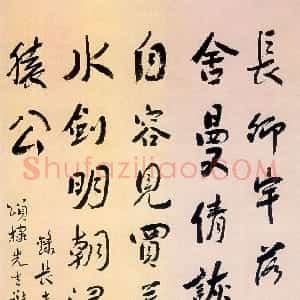 長卿牢落
舍曼倩詼
自容見買若
水劍明朝歸
猿公
錄長吉
頌棣先生
Shufaziliao.com